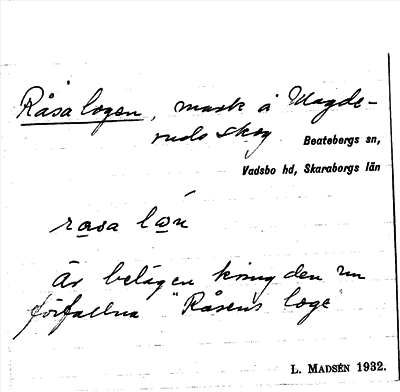 Råsa logen, mark å Magde-
ruds skog
Beatebergs sn,
Vadsbo hd, Skaraborgs län
rasa lån
Är belägen kring den nu
förfallna "Råsens loge"
L. MADSÉN 1932.